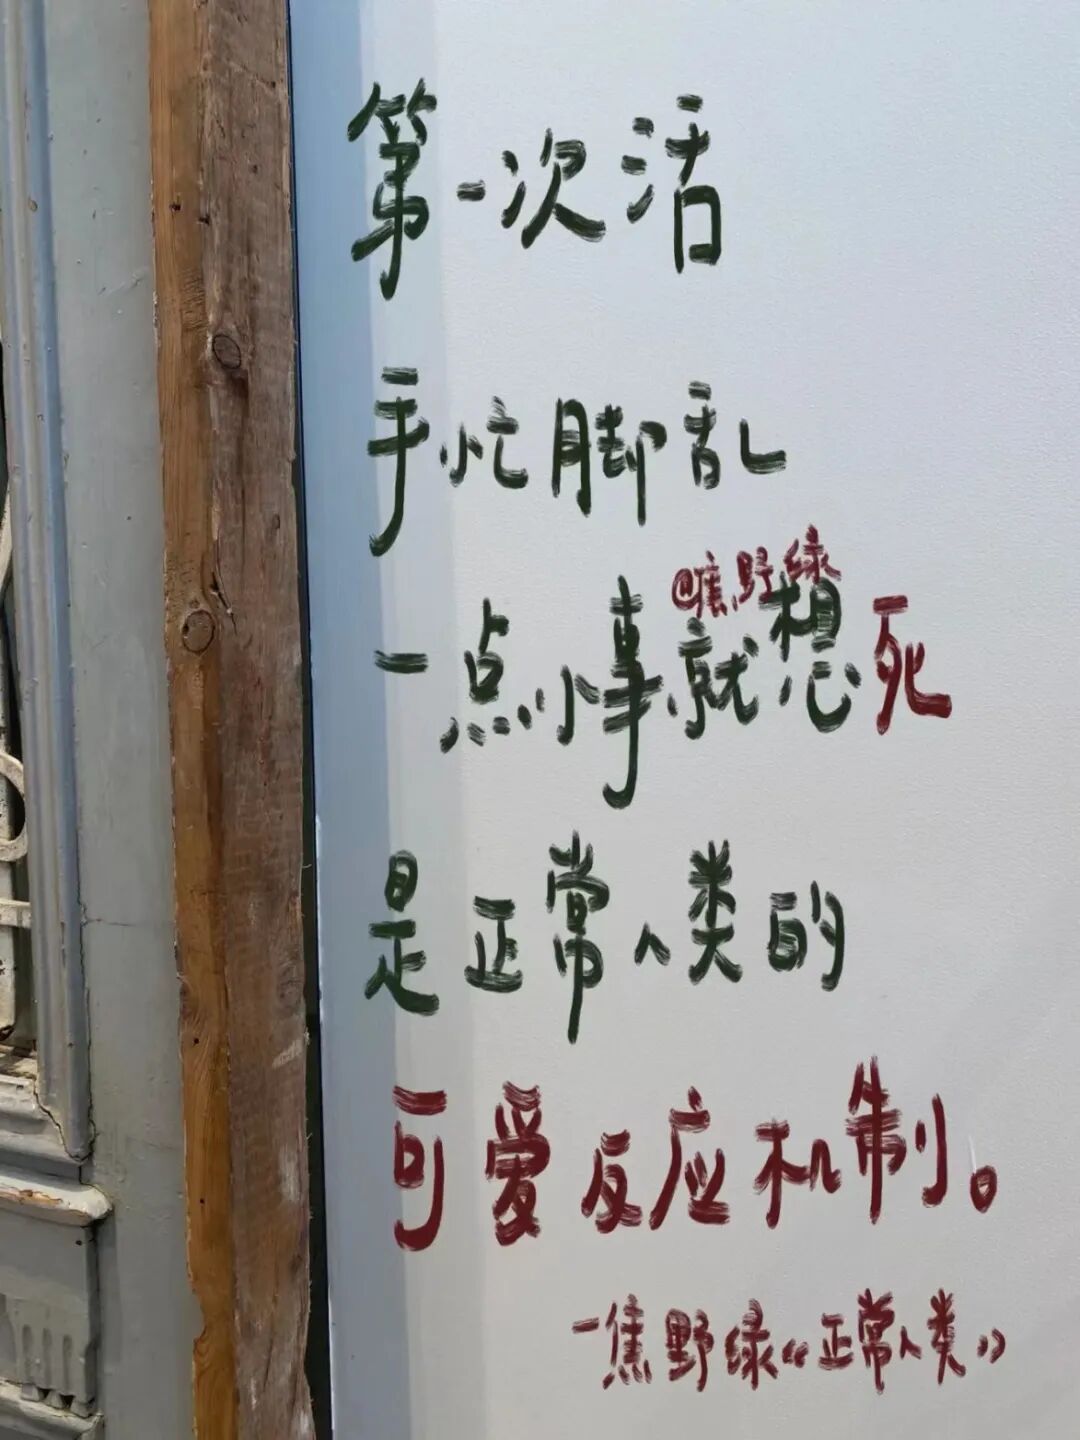 第一次活
手忙脚乱
@焦野绿
一点小事就想死
是正常人类的
可爱反应机制。
—焦野绿《正常人类》